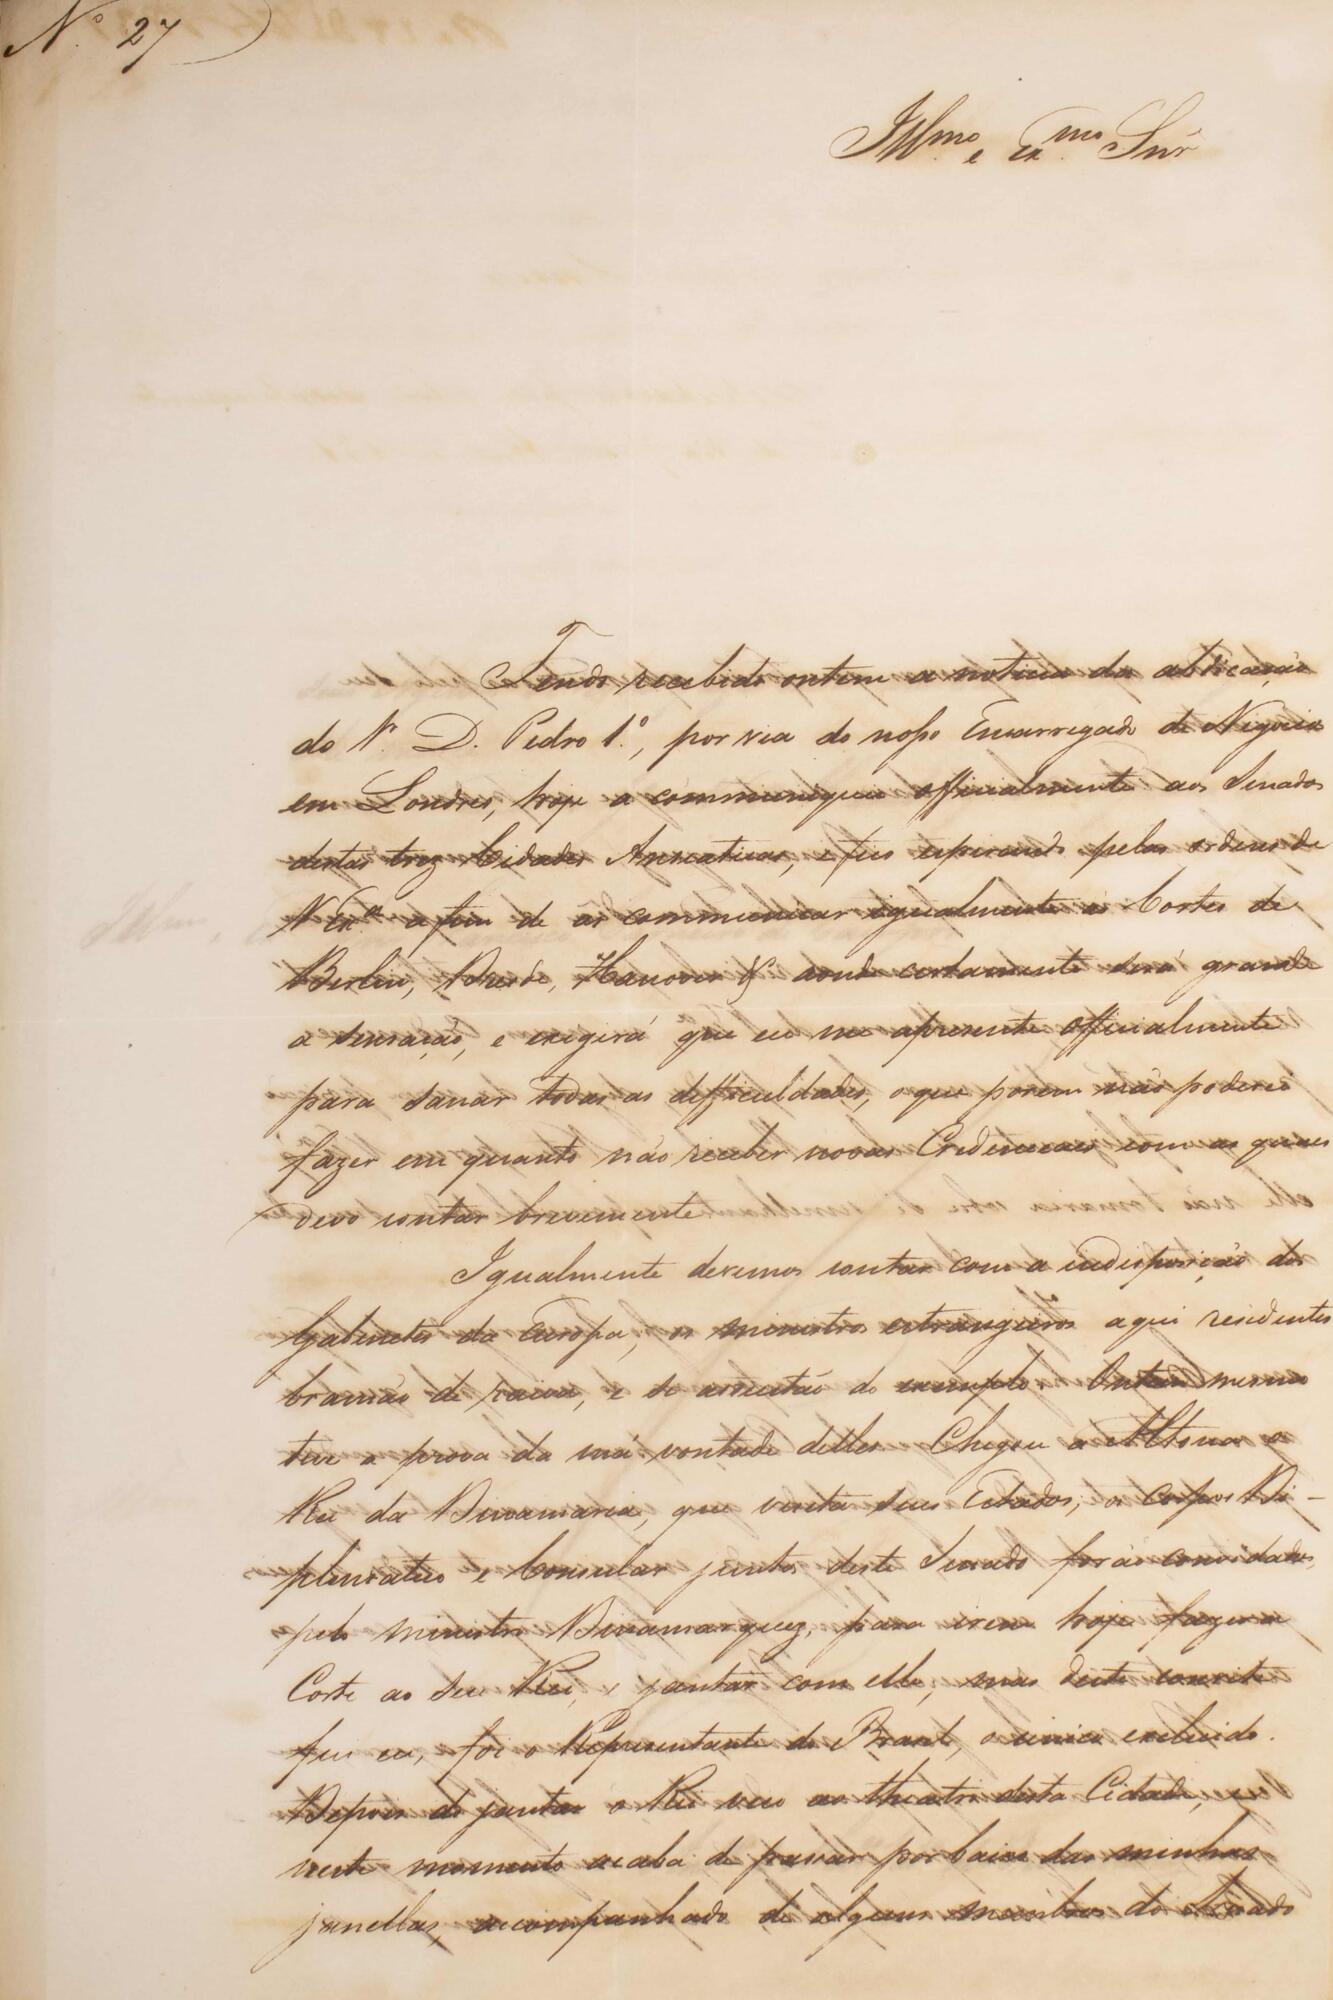 Nº 27
Illmo. e Exmo. Snr
Tendo recebido ontem a noticia da abdicação
do Sr. D. Pedro 1.º, por via do nosso Encarregado de Negocios
em Londres, hoje a communiquei officialmente aos Senados
destas trez Cidades Anseaticas, e fico esperando pelas ordens de
V Exa. a fim de as communicar igualmente ás Cortes de
Berlin, Dresde, Hanover & aonde certamente será grande
a sensação, e exigirá que eu me apresente officialmente
para sanar todas as difficuldades, o que porem não poderei
fazer em quanto não receber novas Credenciaes com as quaes
devo contar brevemente.
Igualmente devemos contar com a indisposição dos
Gabinetes da Europa, os ministros estrangeiros aqui residentes
bramão de raiva, e se assustão do exemplo. Ontem mesmo
tive a prova da má vontade delles. Chegou a Altona o
Rei da Dinamarca, que visita seus Estados; os Corpos Di-
plomatico e Consular junto deste Senado forão convidados
pelo ministro Dinamarquez, para irem hoje fazer a
Corte ao seu Rei, e jantar com elle, mas deste convite
fui eu, foi o Representante do Brasil, o unico excluido.
Depois do jantar o Rei veio ao theatro desta Cidade, e
neste momento acaba de passar por baixo das minhas
janellas, acompanhado de alguns membros do Senado